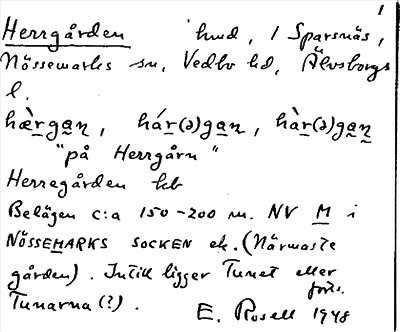 1
Herrgården hmd, / Sparsnäs,
Nössemarks sn, Vedbo hd, Älvsborgs
l.
hæ̀rga̲n̲, hár(ə)ga̲n̲, hàr(ə)ga̲n̲
"på Herrgårn"
Herregården kb
Belägen c:a 150-200 m. NV M i
NÖSSEMARKS SOCKEN ek. (Närmaste
gården). Intill ligger Tunet eller
forts.
Tunarna (?). E. Rosell 1948